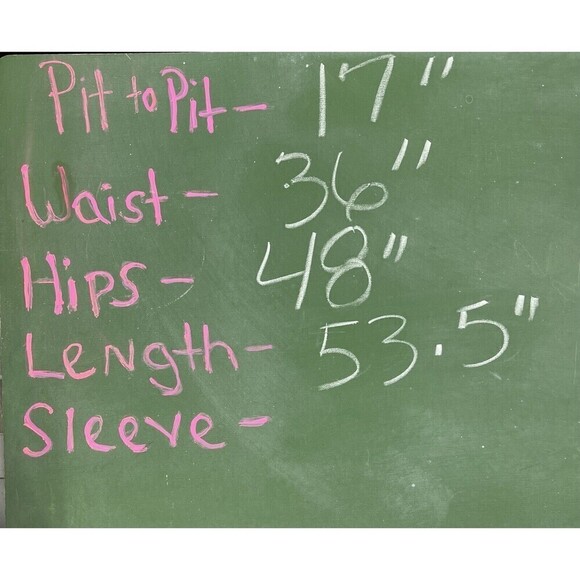 Pit to Pit - 17"
Waist - 36"
Hips - 48"
Length - 53.5"
Sleeve -